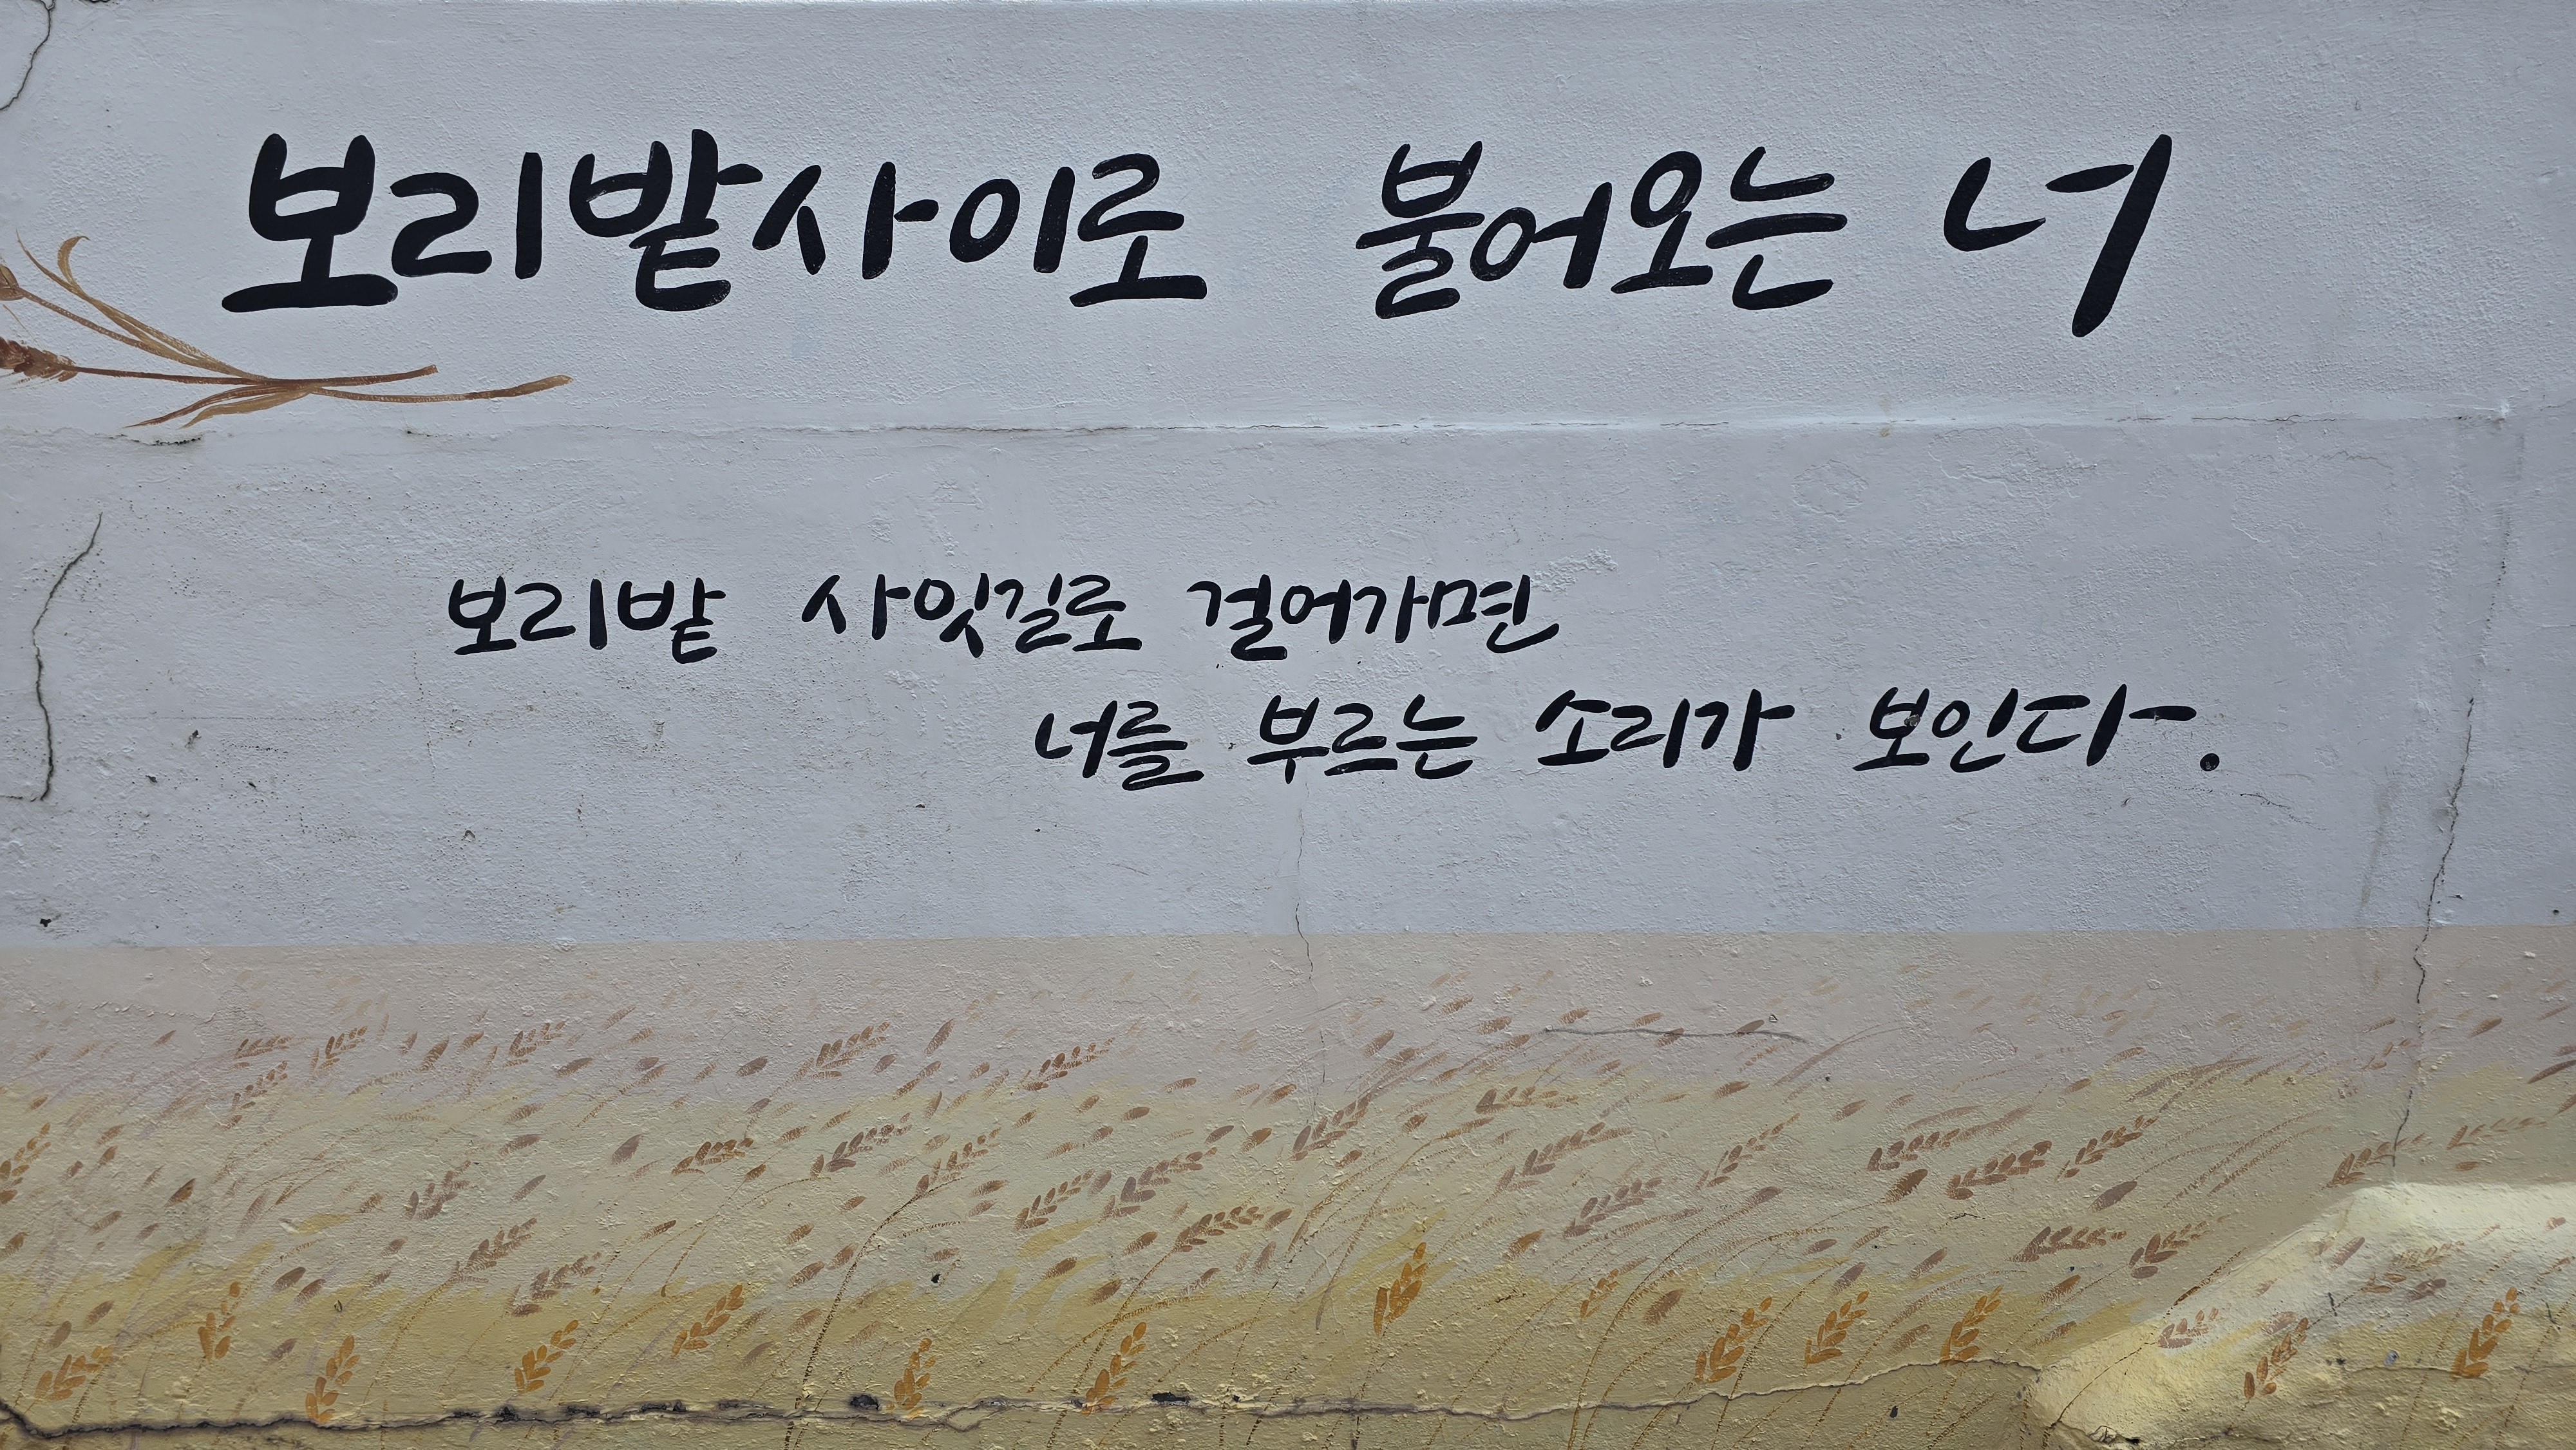 보리밭사이로 불어오는 너
보리밭 사잇길로 걸어가면
너를 부르는 소리가 보인다.